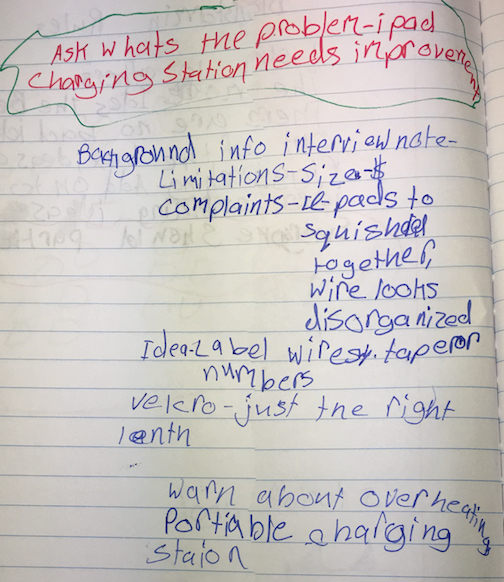 Ask whats the problem-ipad
Charging Station needs improvement
Background info interview note-
Limitations-Size-$
complaints-IE-pads to
squished
together,
wire looks
disorganized
Idea-Label wires. tape or
numbers
velcro-just the right
lenth
Warn about overheating
Portiable charging
Staion